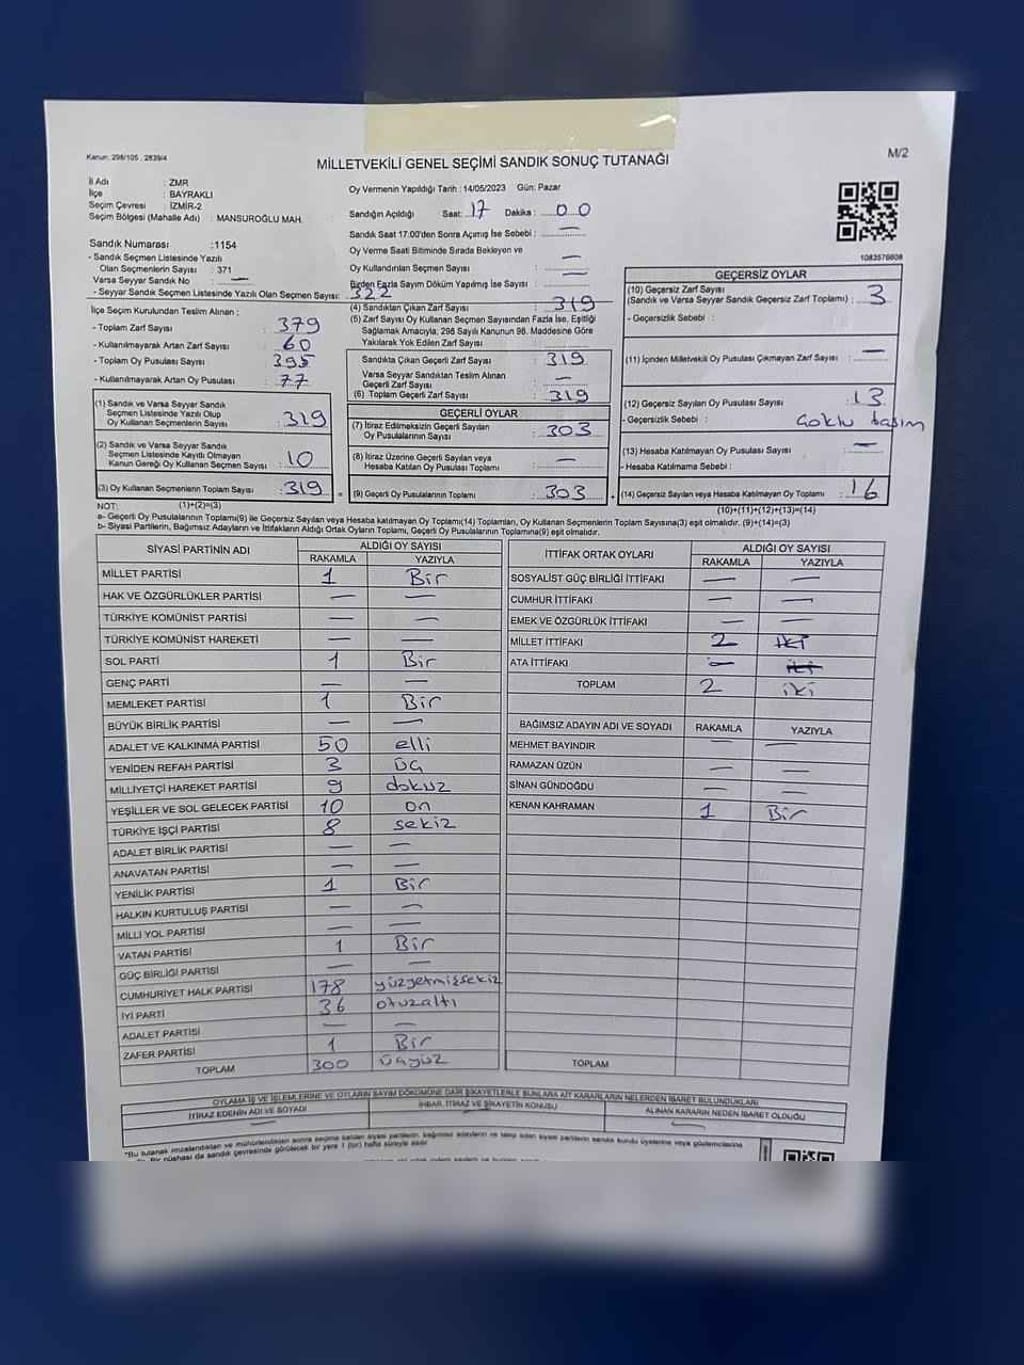 Kanun: 298/105 , 2839/4
M/2
MİLLETVEKİLİ GENEL SEÇİMİ SANDIK SONUÇ TUTANAĞI
İl Adı : ZMR
İlçe : BAYRAKLI
Seçim Çevresi : İZMİR-2
Seçim Bölgesi (Mahalle Adı) : MANSUROĞLU MAH.
Sandık Numarası : 1154
- Sandık Seçmen Listesinde Yazılı
Olan Seçmenlerin Sayısı : 371
Varsa Seyyar Sandık No —
- Seyyar Sandık Seçmen Listesinde Yazılı Olan Seçmen Sayısı:
Oy Vermenin Yapıldığı Tarih : 14/05/2023 Gün: Pazar
Sandığın Açıldığı Saat: 17 Dakika : 00
Sandık Saat 17:00'den Sonra Açılmış İse Sebebi : —
Oy Verme Saati Bitiminde Sırada Bekleyen ve
Oy Kullandırılan Seçmen Sayısı : —
Birden Fazla Sayım Döküm Yapılmış İse Sayısı : —
322
1083576608
İlçe Seçim Kurulundan Teslim Alınan :
- Toplam Zarf Sayısı : 379
- Kullanılmayarak Artan Zarf Sayısı : 60
- Toplam Oy Pusulası Sayısı : 395
- Kullanılmayarak Artan Oy Pusulası : 77
(1) Sandık ve Varsa Seyyar Sandık
Seçmen Listesinde Yazılı Olup
Oy Kullanan Seçmenlerin Sayısı : 319
(2) Sandık ve Varsa Seyyar Sandık
Seçmen Listesinde Kayıtlı Olmayan
Kanun Gereği Oy Kullanan Seçmen Sayısı : 10
(3) Oy Kullanan Seçmenlerin Toplam Sayısı : 319
(1)+(2)=(3)
(4) Sandıktan Çıkan Zarf Sayısı : 319
(5) Zarf Sayısı Oy Kullanan Seçmen Sayısından Fazla İse, Eşitliği
Sağlamak Amacıyla, 298 Sayılı Kanunun 98. Maddesine Göre
Yakılarak Yok Edilen Zarf Sayısı :
Sandıkta Çıkan Geçerli Zarf Sayısı : 319
Varsa Seyyar Sandıktan Teslim Alınan
Geçerli Zarf Sayısı : —
(6) Toplam Geçerli Zarf Sayısı : 319
GEÇERLİ OYLAR
(7) İtiraz Edilmeksizin Geçerli Sayılan
Oy Pusulalarının Sayısı : 303
(8) İtiraz Üzerine Geçerli Sayılan veya
Hesaba Katılan Oy Pusulası Toplamı : —
(9) Geçerli Oy Pusulalarının Toplamı : 303
GEÇERSİZ OYLAR
(10) Geçersiz Zarf Sayısı
(Sandık ve Varsa Seyyar Sandık Geçersiz Zarf Toplamı) : 3
- Geçersizlik Sebebi :
(11) İçinden Milletvekili Oy Pusulası Çıkmayan Zarf Sayısı : —
(12) Geçersiz Sayılan Oy Pusulası Sayısı : 13
- Geçersizlik Sebebi : Çoklu basım
(13) Hesaba Katılmayan Oy Pusulası Sayısı : —
- Hesaba Katılmama Sebebi :
(14) Geçersiz Sayılan veya Hesaba Katılmayan Oy Toplamı : 16
(10)+(11)+(12)+(13)=(14)
NOT:
a- Geçerli Oy Pusulalarının Toplamı(9) ile Geçersiz Sayılan veya Hesaba katılmayan Oy Toplamı(14) Toplamları, Oy Kullanan Seçmenlerin Toplam Sayısına(3) eşit olmalıdır. (9)+(14)=(3)
b- Siyasi Partilerin, Bağımsız Adayların ve İttifakların Aldığı Ortak Oyların Toplamı, Geçerli Oy Pusulalarının Toplamına(9) eşit olmalıdır.
SİYASİ PARTİNİN ADI ALDIĞI OY SAYISI
RAKAMLA YAZIYLA
MİLLET PARTİSİ 1 Bir
HAK VE ÖZGÜRLÜKLER PARTİSİ — —
TÜRKİYE KOMÜNİST PARTİSİ — —
TÜRKİYE KOMÜNİST HAREKETİ — —
SOL PARTİ 1 Bir
GENÇ PARTİ — —
MEMLEKET PARTİSİ 1 Bir
BÜYÜK BİRLİK PARTİSİ — —
ADALET VE KALKINMA PARTİSİ 50 elli
YENİDEN REFAH PARTİSİ 3 üç
MİLLİYETÇİ HAREKET PARTİSİ 9 dokuz
YEŞİLLER VE SOL GELECEK PARTİSİ 10 on
TÜRKİYE İŞÇİ PARTİSİ 8 sekiz
ADALET BİRLİK PARTİSİ — —
ANAVATAN PARTİSİ — —
YENİLİK PARTİSİ 1 Bir
HALKIN KURTULUŞ PARTİSİ — —
MİLLİ YOL PARTİSİ — —
VATAN PARTİSİ 1 Bir
GÜÇ BİRLİĞİ PARTİSİ — —
CUMHURİYET HALK PARTİSİ 178 yüzyetmişsekiz
İYİ PARTİ 36 otuzaltı
ADALET PARTİSİ — —
ZAFER PARTİSİ 1 Bir
TOPLAM 300 üçyüz
İTTİFAK ORTAK OYLARI ALDIĞI OY SAYISI
RAKAMLA YAZIYLA
SOSYALİST GÜÇ BİRLİĞİ İTTİFAKI — —
CUMHUR İTTİFAKI — —
EMEK VE ÖZGÜRLÜK İTTİFAKI — —
MİLLET İTTİFAKI 2 iki
ATA İTTİFAKI — iki
TOPLAM 2 iki
BAĞIMSIZ ADAYIN ADI VE SOYADI RAKAMLA YAZIYLA
MEHMET BAYINDIR — —
RAMAZAN ÜZÜN — —
SİNAN GÜNDOĞDU — —
KENAN KAHRAMAN 1 Bir
TOPLAM
OYLAMA İŞ VE İŞLEMLERİNE VE OYLARIN SAYIM DÖKÜMÜNE DAİR ŞİKAYETLERLE BUNLARA AİT KARARLARIN NELERDEN İBARET BULUNDUKLARI
İTİRAZ EDENİN ADI VE SOYADI İHBAR, İTİRAZ VE ŞİKAYETİN KONUSU ALINAN KARARIN NEDEN İBARET OLDUĞU
— — —